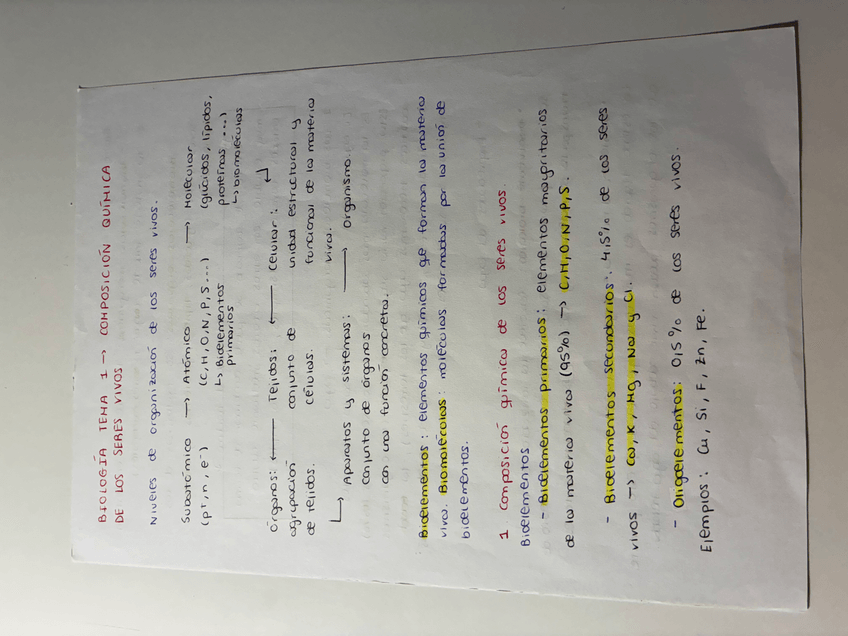 BIOLOGÍA TEMA 1 → COMPOSICIÓN QUÍMICA
DE LOS SERES VIVOS
Niveles de organización de los seres vivos.
Subatómico → Atómico → Molecular
(p⁺, n, e⁻) (C, H, O, N, P, S...) (glúcidos, lípidos,
↳ Bioelementos proteínas ...)
primarios ↳ biomoléculas
Órganos: ← Tejidos: ← Celular: ↵
agrupación conjunto de unidad estructural y
de tejidos. células. funcional de la materia
viva.
↳ Aparatos y sistemas: → Organismo.
conjunto de órganos
con una función concreta.
Bioelementos: elementos químicos que forman la materia
viva. Biomoléculas: moléculas formadas por la unión de
bioelementos.
1. Composición química de los seres vivos
Bioelementos
- Bioelementos primarios: elementos mayoritarios
de la materia viva (95%) → C, H, O, N, P, S.
- Bioelementos secundarios: 4,5% de los seres
vivos → Ca, K, Mg, Na y Cl.
- Oligoelementos: 0,5% de los seres vivos.
Ejemplos: Cu, Si, F, Zn, Fe.